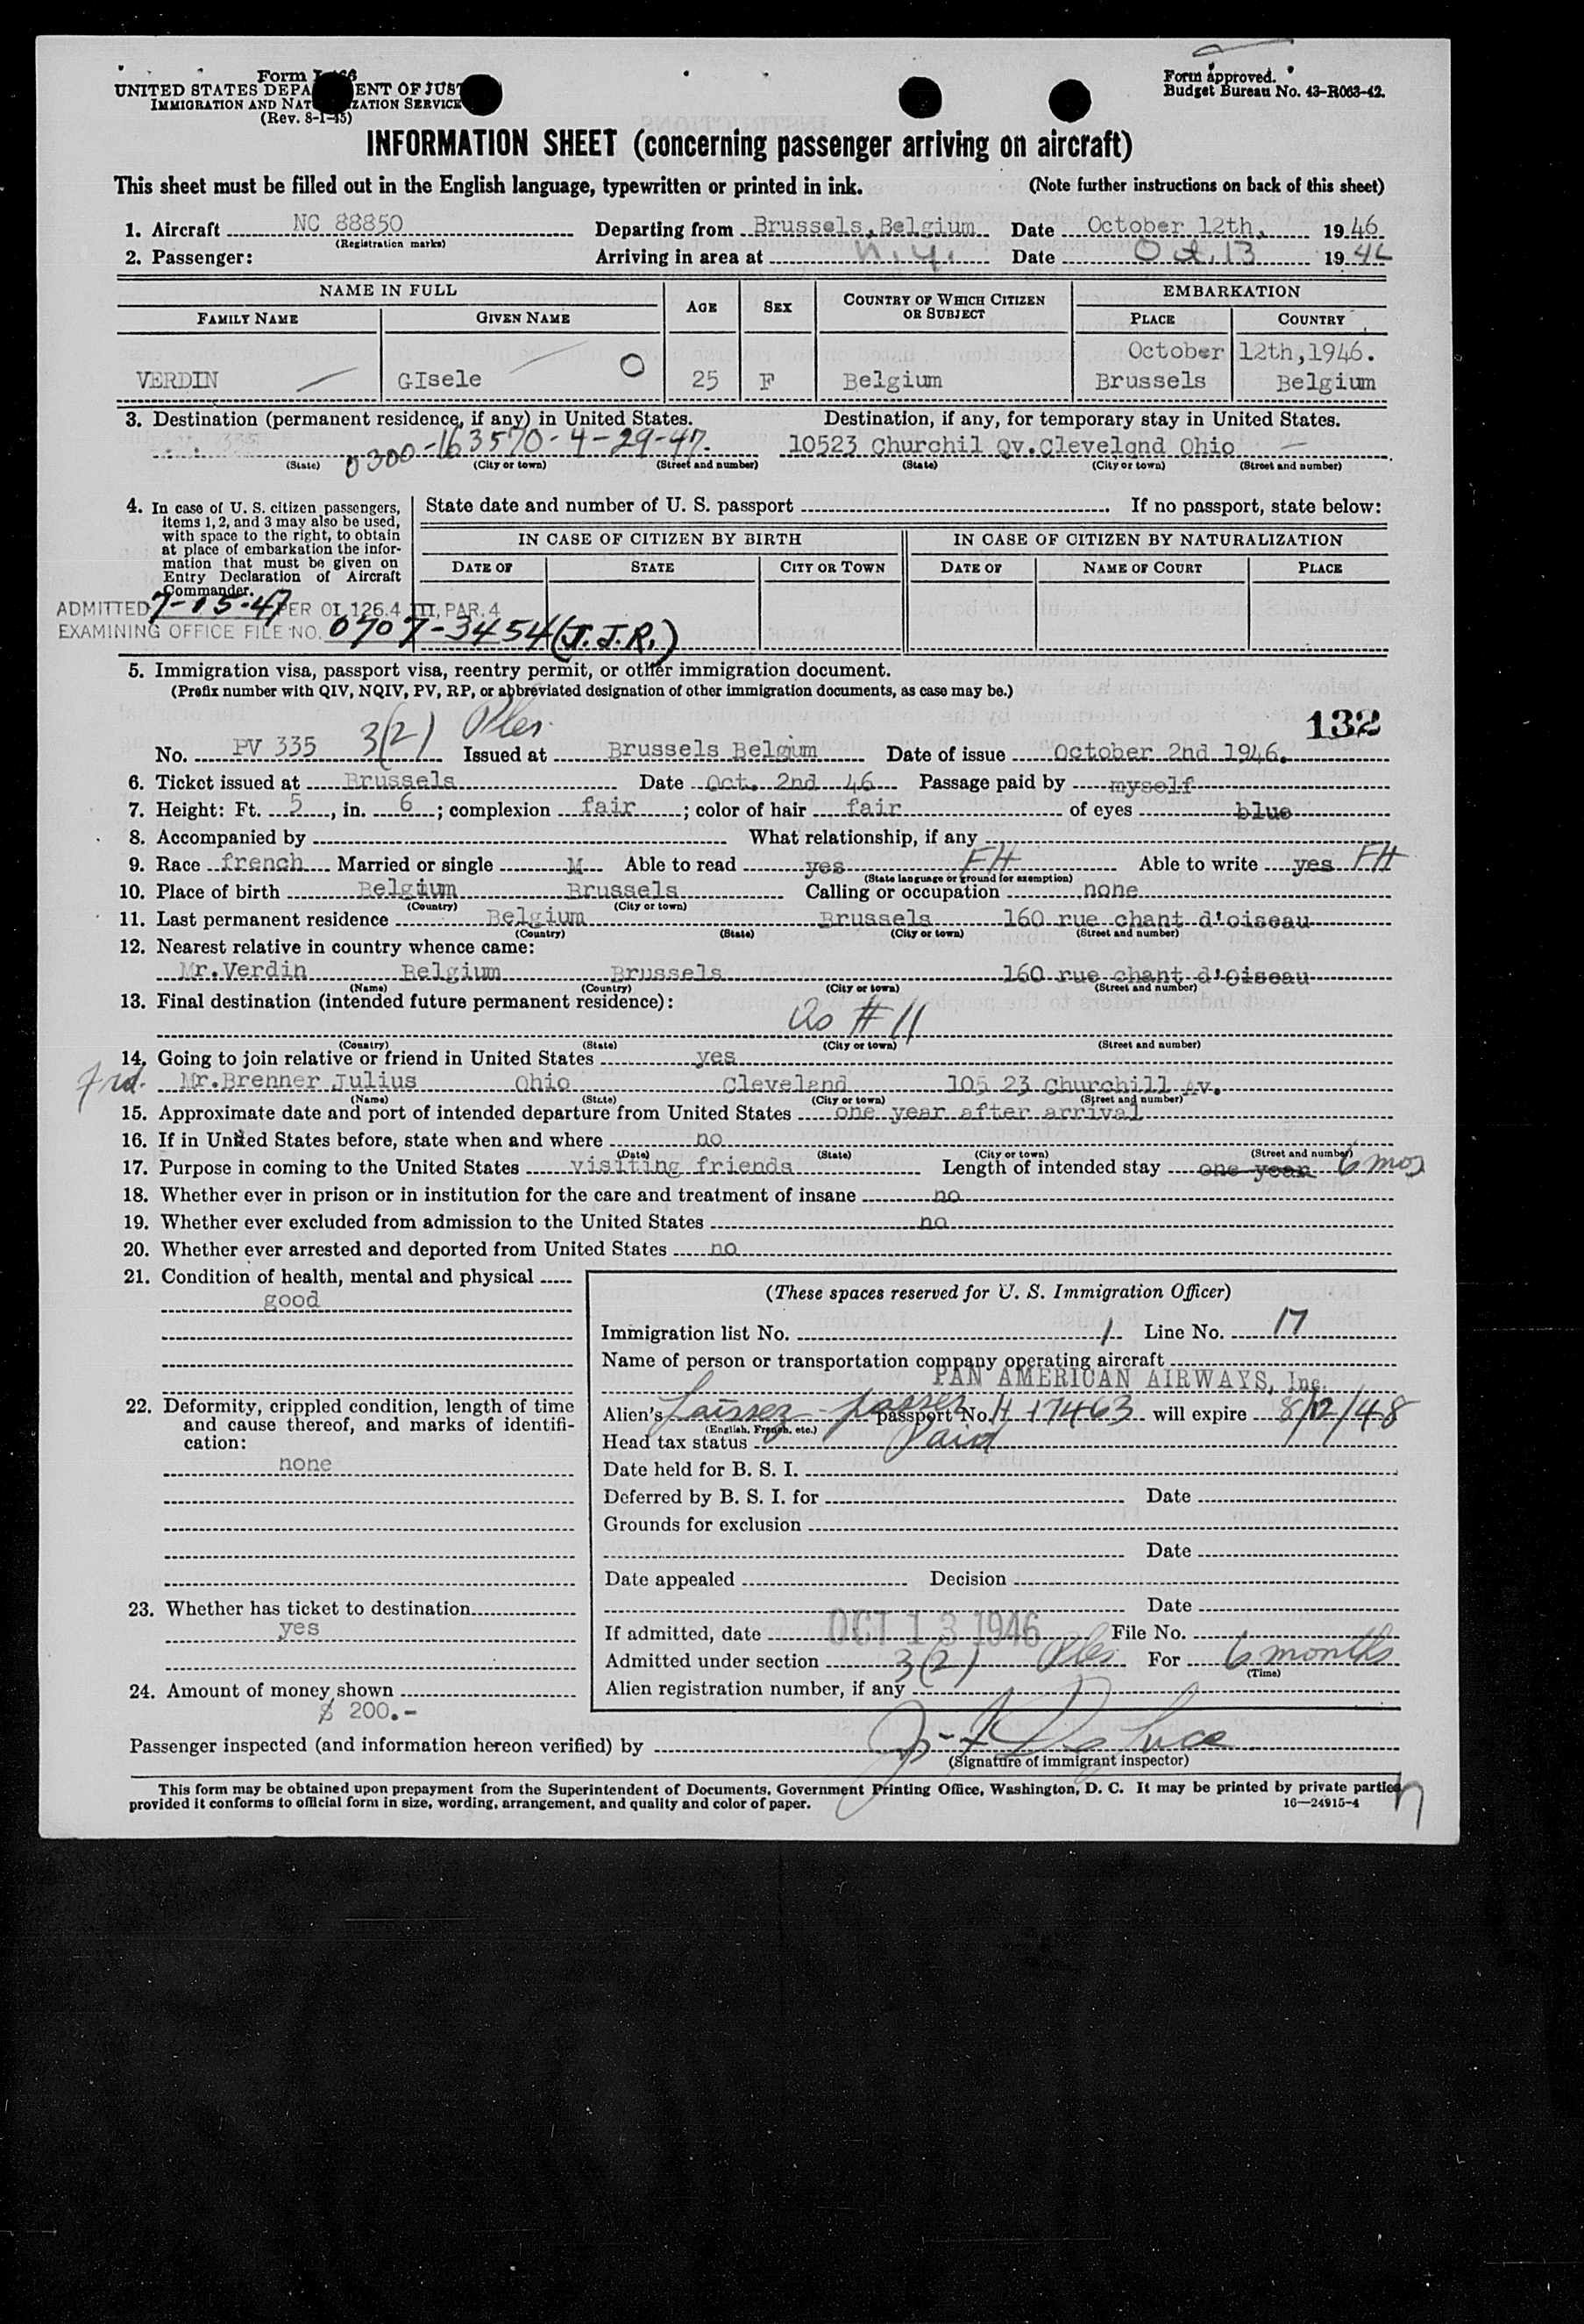 Form I-466
UNITED STATES DEPARTMENT OF JUSTICE
IMMIGRATION AND NATURALIZATION SERVICE
(Rev. 8-1-45)
Form approved.
Budget Bureau No. 43-R063-42.
INFORMATION SHEET (concerning passenger arriving on aircraft)
This sheet must be filled out in the English language, typewritten or printed in ink. (Note further instructions on back of this sheet)
1. Aircraft NC 88850 Departing from Brussels,Belgium Date October 12th, 1946
(Registration marks)
2. Passenger: Arriving in area at N.Y. Date Oct. 13 1946
NAME IN FULL AGE SEX COUNTRY OF WHICH CITIZEN OR SUBJECT EMBARKATION
FAMILY NAME GIVEN NAME PLACE COUNTRY
October 12th,1946.
VERDIN GIsele 0 25 F Belgium Brussels Belgium
3. Destination (permanent residence, if any) in United States. Destination, if any, for temporary stay in United States.
0300-163570-4-29-47. 10523 Churchil Qv.Cleveland Ohio
(State) (City or town) (Street and number) (State) (City or town) (Street and number)
4. In case of U. S. citizen passengers, items 1, 2, and 3 may also be used, with space to the right, to obtain at place of embarkation the information that must be given on Entry Declaration of Aircraft Commander.
State date and number of U. S. passport If no passport, state below:
IN CASE OF CITIZEN BY BIRTH IN CASE OF CITIZEN BY NATURALIZATION
DATE OF STATE CITY OR TOWN DATE OF NAME OF COURT PLACE
ADMITTED 7-15-47 PER OI 126.4 III, PAR. 4
EXAMINING OFFICE FILE NO. 0707-3454 (J.J.R.)
5. Immigration visa, passport visa, reentry permit, or other immigration document.
(Prefix number with QIV, NQIV, PV, RP, or abbreviated designation of other immigration documents, as case may be.)
132
No. PV 335 3(2) Ples. Issued at Brussels Belgium Date of issue October 2nd 1946.
6. Ticket issued at Brussels Date Oct. 2nd 46 Passage paid by myself
7. Height: Ft. 5, in. 6; complexion fair; color of hair fair of eyes blue
8. Accompanied by What relationship, if any
9. Race french Married or single M Able to read yes FH Able to write yes FH
(State language or ground for exemption)
10. Place of birth Belgium Brussels Calling or occupation none
(Country) (City or town)
11. Last permanent residence Belgium Brussels 160 rue chant d'oiseau
(Country) (State) (City or town) (Street and number)
12. Nearest relative in country whence came:
Mr.Verdin Belgium Brussels 160 rue chant d'Oiseau
(Name) (Country) (City or town) (Street and number)
13. Final destination (intended future permanent residence):
As # 11
(Country) (State) (City or town) (Street and number)
14. Going to join relative or friend in United States yes
frd. Mr.Brenner Julius Ohio Cleveland 105 23 Churchill Av.
(Name) (State) (City or town) (Street and number)
15. Approximate date and port of intended departure from United States one year after arrival
16. If in United States before, state when and where no
(Date) (State) (City or town) (Street and number)
17. Purpose in coming to the United States visiting friends Length of intended stay one year 6 mos
18. Whether ever in prison or in institution for the care and treatment of insane no
19. Whether ever excluded from admission to the United States no
20. Whether ever arrested and deported from United States no
21. Condition of health, mental and physical
good
22. Deformity, crippled condition, length of time and cause thereof, and marks of identification:
none
23. Whether has ticket to destination
yes
24. Amount of money shown
$ 200.-
(These spaces reserved for U. S. Immigration Officer)
Immigration list No. 1 Line No. 17
Name of person or transportation company operating aircraft
PAN AMERICAN AIRWAYS, Inc.
Alien's Laissez-passer passport No. H 17463 will expire 8/12/48
(English, French, etc.)
Head tax status Paid
Date held for B. S. I.
Deferred by B. S. I. for Date
Grounds for exclusion
Date
Date appealed Decision
Date
If admitted, date OCT 13 1946 File No.
Admitted under section 3(2) Ples For 6 months
(Time)
Alien registration number, if any
Passenger inspected (and information hereon verified) by
(Signature of immigrant inspector)
This form may be obtained upon prepayment from the Superintendent of Documents, Government Printing Office, Washington, D. C. It may be printed by private parties
provided it conforms to official form in size, wording, arrangement, and quality and color of paper. 16—24915-4